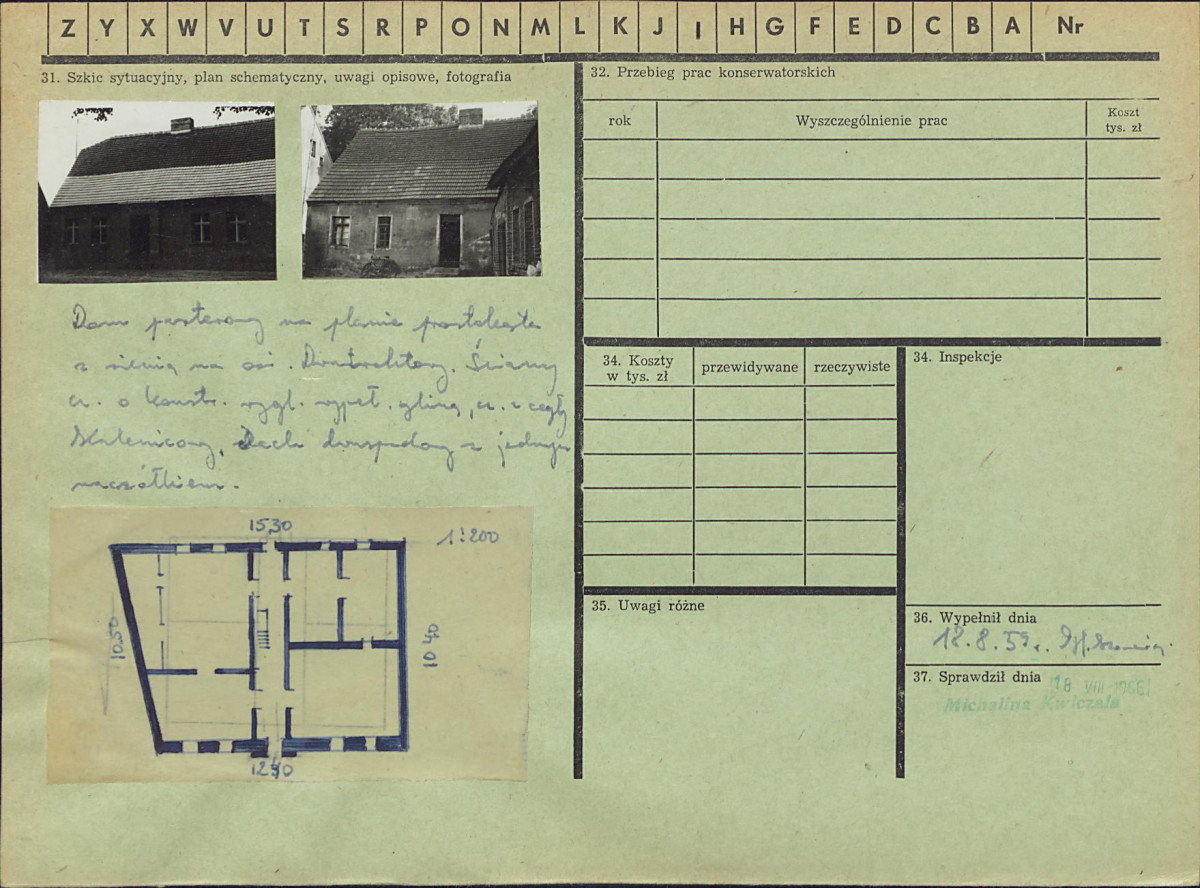 Z Y X W V U T S R P O N M L K J I H G F E D C B A Nr
31. Szkic sytuacyjny, plan schematyczny, uwagi opisowe, fotografia
Dom parterowy na planie prostokąta
z sienią na osi. Dwutraktowy. Ściany
cz. o konstr. rygl. wypeł. gliną, cz. z cegły
Dach dwuspadowy z jednym
naczółkiem.
15,30
1:200
10,50
10,40
32. Przebieg prac konserwatorskich
rok
Wyszczególnienie prac
Koszt
tys. zł
34. Koszty
w tys. zł
przewidywane
rzeczywiste
34. Inspekcje
35. Uwagi różne
36. Wypełnił dnia
18.8.59 r.
37. Sprawdził dnia
18 VIII 1968
Michalina Kwiczala